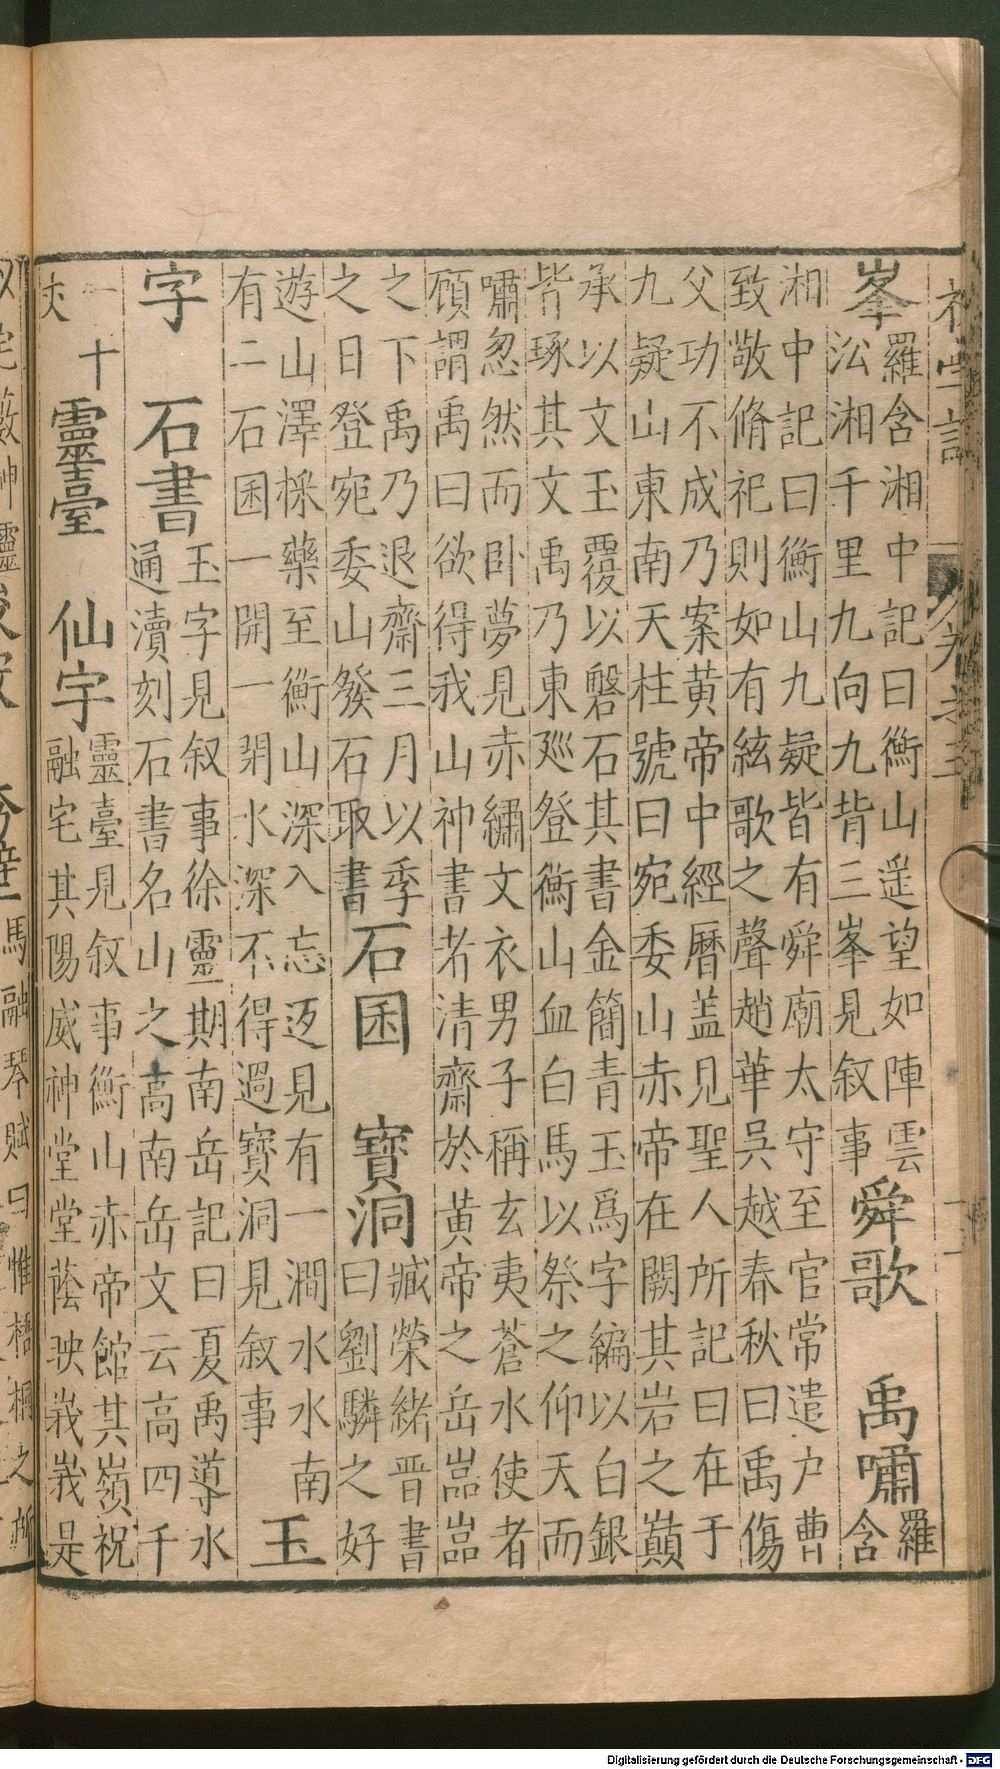 峯
羅含湘中記曰衡山遥望如陣雲
㳂湘千里九向九背三峯見叙事
舜歌 禹嘯
羅
含
湘中記曰衡山九疑皆有舜廟太守至官常遣户曹
致敬脩祀則如有絃歌之聲趙華吳越春秋曰禹傷
父功不成乃案黃帝中經曆盖見聖人所記曰在于
九疑山東南天柱號曰宛委山赤帝在闕其岩之巔
承以文玉覆以磐石其書金簡青玉爲字編以白銀
皆琢其文禹乃東廵登衡山血白馬以祭之仰天而
嘯忽然而卧夢見赤繡文衣男子稱玄夷蒼水使者
顧謂禹曰欲得我山神書者清齋於黃帝之岳嵓嵓
之下禹乃退齋三月以季
之日登宛委山發石取書
石囷 寶洞
臧榮緒晋書
曰劉驎之好
遊山澤採藥至衡山深入忘返見有一澗水水南
有二石囷一開一閉水深不得過寶洞見叙事
玉
字 石書
玉字見叙事徐靈期南岳記曰夏禹導水
通瀆刻石書名山之高南岳文云高四千
一十
丈
靈臺 仙宇
靈臺見叙事衡山赤帝館其嶺祝
融宅其陽威神堂堂蔭映峩峩是
馬融琴賦曰惟梧桐之所
Digitalisierung gefördert durch die Deutsche Forschungsgemeinschaft - DFG